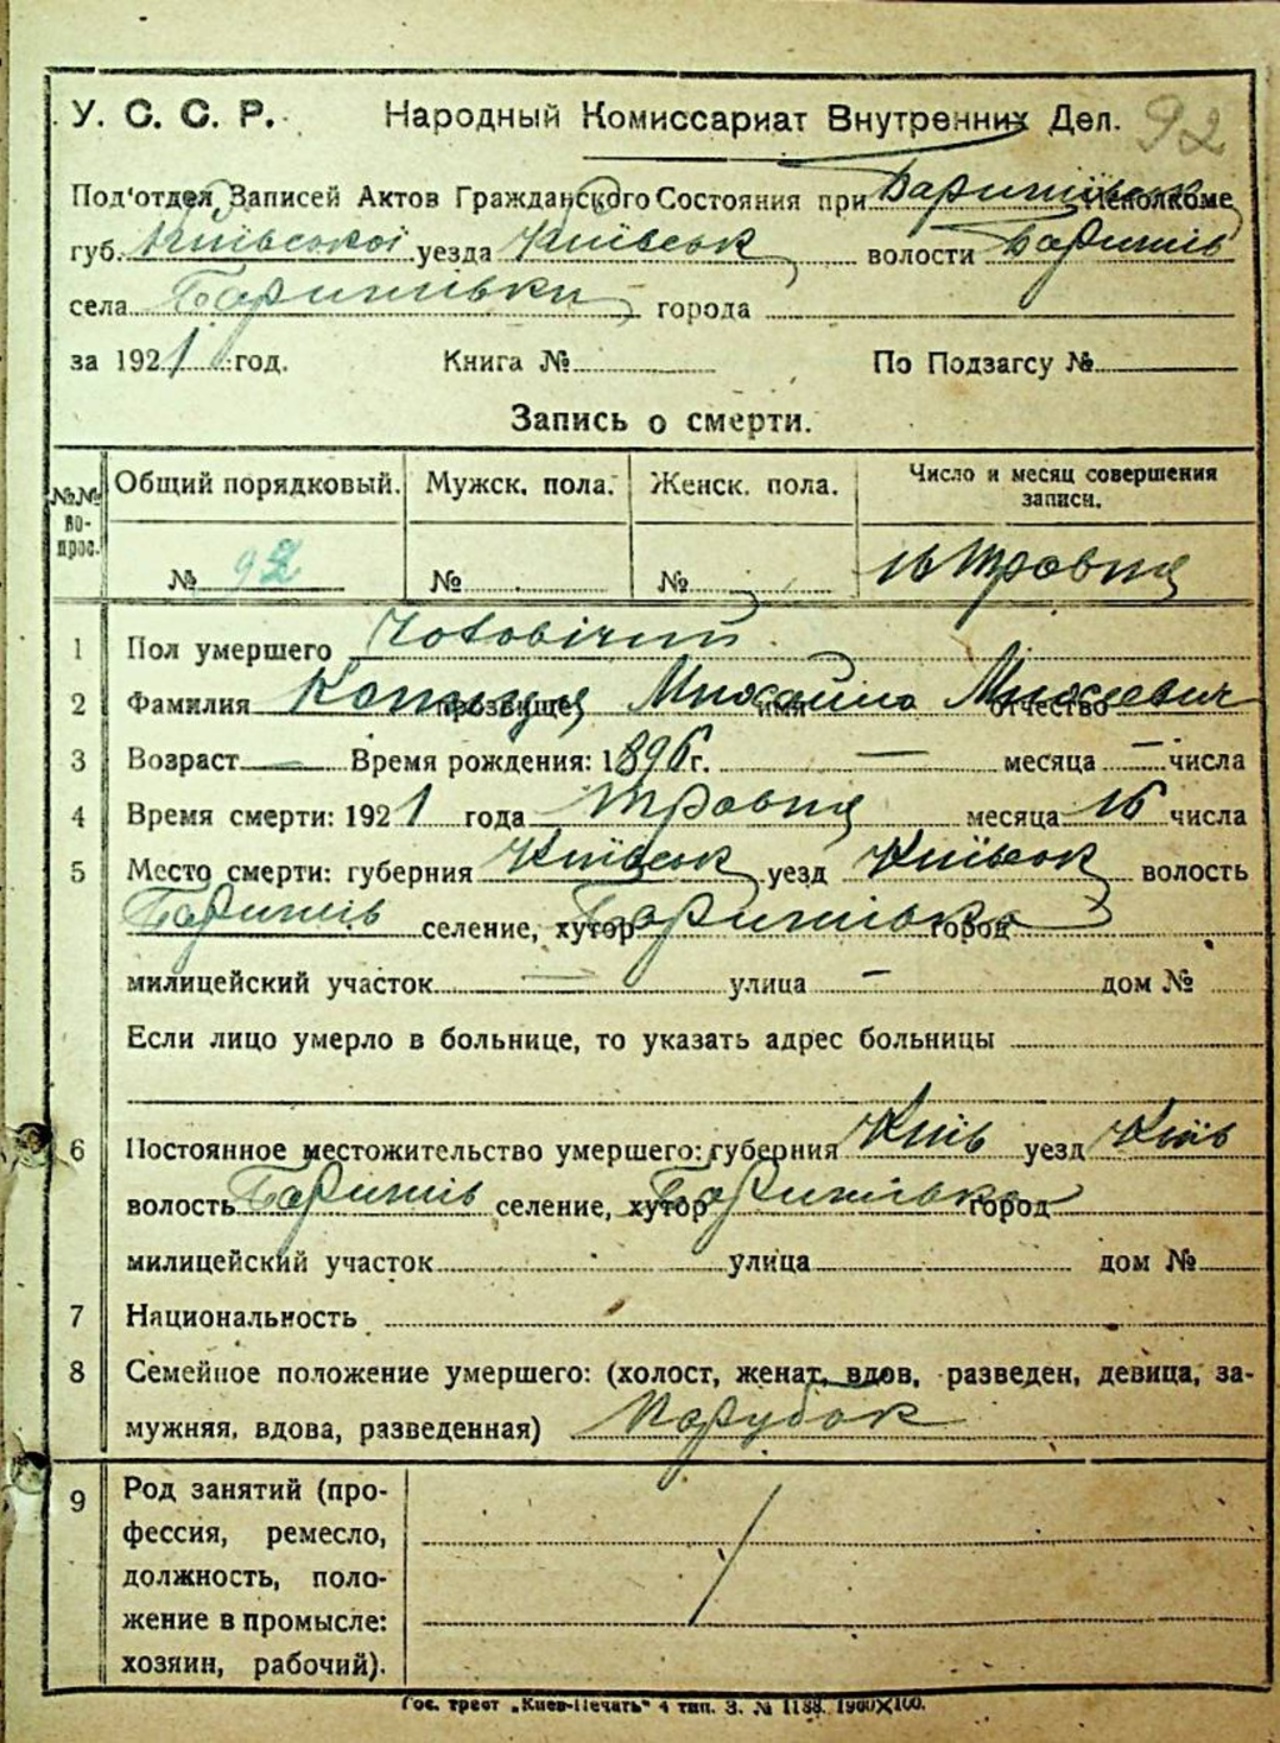 92
У. С. С. Р. Народный Комиссариат Внутренних Дел.
Под'отдел Записей Актов Гражданского Состояния при Баришівськ Исполкоме
губ. Київської уезда Київськ волости Баришів
села Баришівки города
за 1921 год. Книга № По Подзагсу №
Запись о смерти.
№№ вопрос. Общий порядковый. Мужск. пола. Женск. пола. Число и месяц совершения записи.
№ 92 № № 16 травня
1 Пол умершего Чоловічий
2 Фамилия прозвище Михайло имя отчество
3 Возраст — Время рождения: 1896 г. — месяца — числа
4 Время смерти: 1921 года травня месяца 16 числа
5 Место смерти: губерния Київськ уезд Київськ волость
Баришів селение, хутор Баришівка город
милицейский участок — улица — дом №
Если лицо умерло в больнице, то указать адрес больницы
6 Постоянное местожительство умершего: губерния Київ уезд Київ
волость Баришів селение, хутор Баришівка город
милицейский участок улица дом №
7 Национальность
8 Семейное положение умершего: (холост, женат, вдов, разведен, девица, за-
мужняя, вдова, разведенная) Парубок
9 Род занятий (про-
фессия, ремесло,
должность, поло-
жение в промысле:
хозяин, рабочий).
Гос. трест „Киев-Печать" 4 тип. З. № 1188. 1900X100.